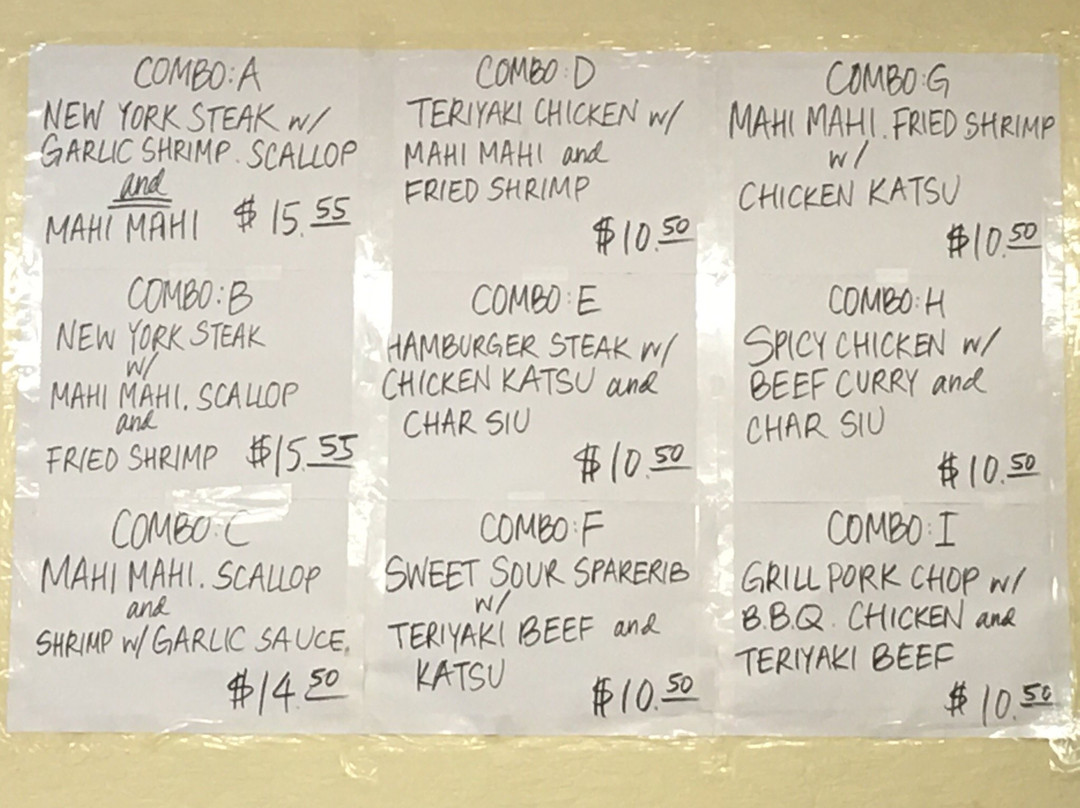 COMBO:A
NEW YORK STEAK w/
GARLIC SHRIMP. SCALLOP
and
MAHI MAHI $15.55
COMBO:B
NEW YORK STEAK
w/
MAHI MAHI. SCALLOP
and
FRIED SHRIMP $15.55
COMBO:C
MAHI MAHI. SCALLOP
and
SHRIMP w/ GARLIC SAUCE.
$14.50
COMBO:D
TERIYAKI CHICKEN w/
MAHI MAHI and
FRIED SHRIMP
$10.50
COMBO:E
HAMBURGER STEAK w/
CHICKEN KATSU and
CHAR SIU
$10.50
COMBO:F
SWEET SOUR SPARERIB
w/
TERIYAKI BEEF and
KATSU
$10.50
COMBO:G
MAHI MAHI. FRIED SHRIMP
w/
CHICKEN KATSU
$10.50
COMBO:H
SPICY CHICKEN w/
BEEF CURRY and
CHAR SIU
$10.50
COMBO:I
GRILL PORK CHOP w/
B.B.Q. CHICKEN and
TERIYAKI BEEF
$10.50